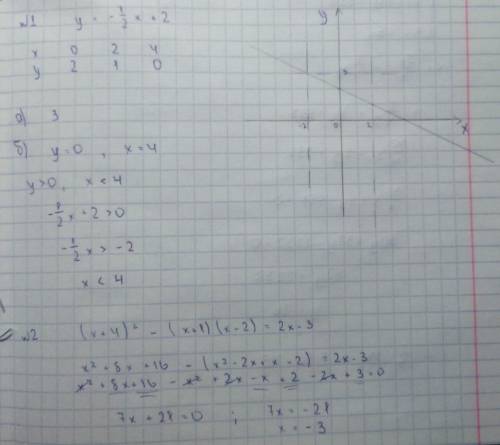 №1 y = -1/2x + 2
x 0 2 4
y 2 1 0
а) 3
б) y=0, x=4
y>0, x<4
-1/2x+2>0
-1/2x > -2
x < 4
y
3
-2 0 2
x
№2 (x+4)² - (x+1)(x-2) = 2x-3
x² + 8x + 16 - (x² - 2x + x - 2) = 2x-3
x² + 8x + 16 - x² + 2x - x + 2 - 2x + 3 = 0
7x + 21 = 0 ; 7x = -21
x = -3